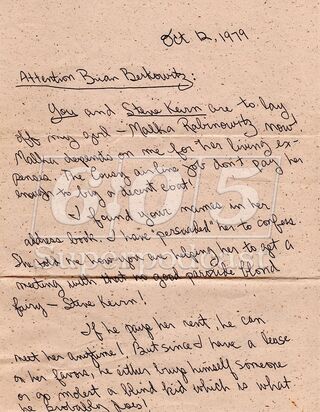 Oct 12, 1979
Attention Brian Berkowitz:
You and Steve Keirn are to lay
off my girl - Malka Rabinowitz now!
Malka depends on me for her living ex-
penses. The lousy airline you don't pay her
enough to buy a decent coat!
I found your names in her
address book. I have persuaded her to confess.
She told me how you are helping her to get a
meeting with that no good peroxide blond
fairy - Steve Keirn!
If he pays her rent, he can
meet her anytime! But since I have a lease
on her favors, he either buys himself someone
or go molest a blind kid which is what
he probably does!
605
podcast